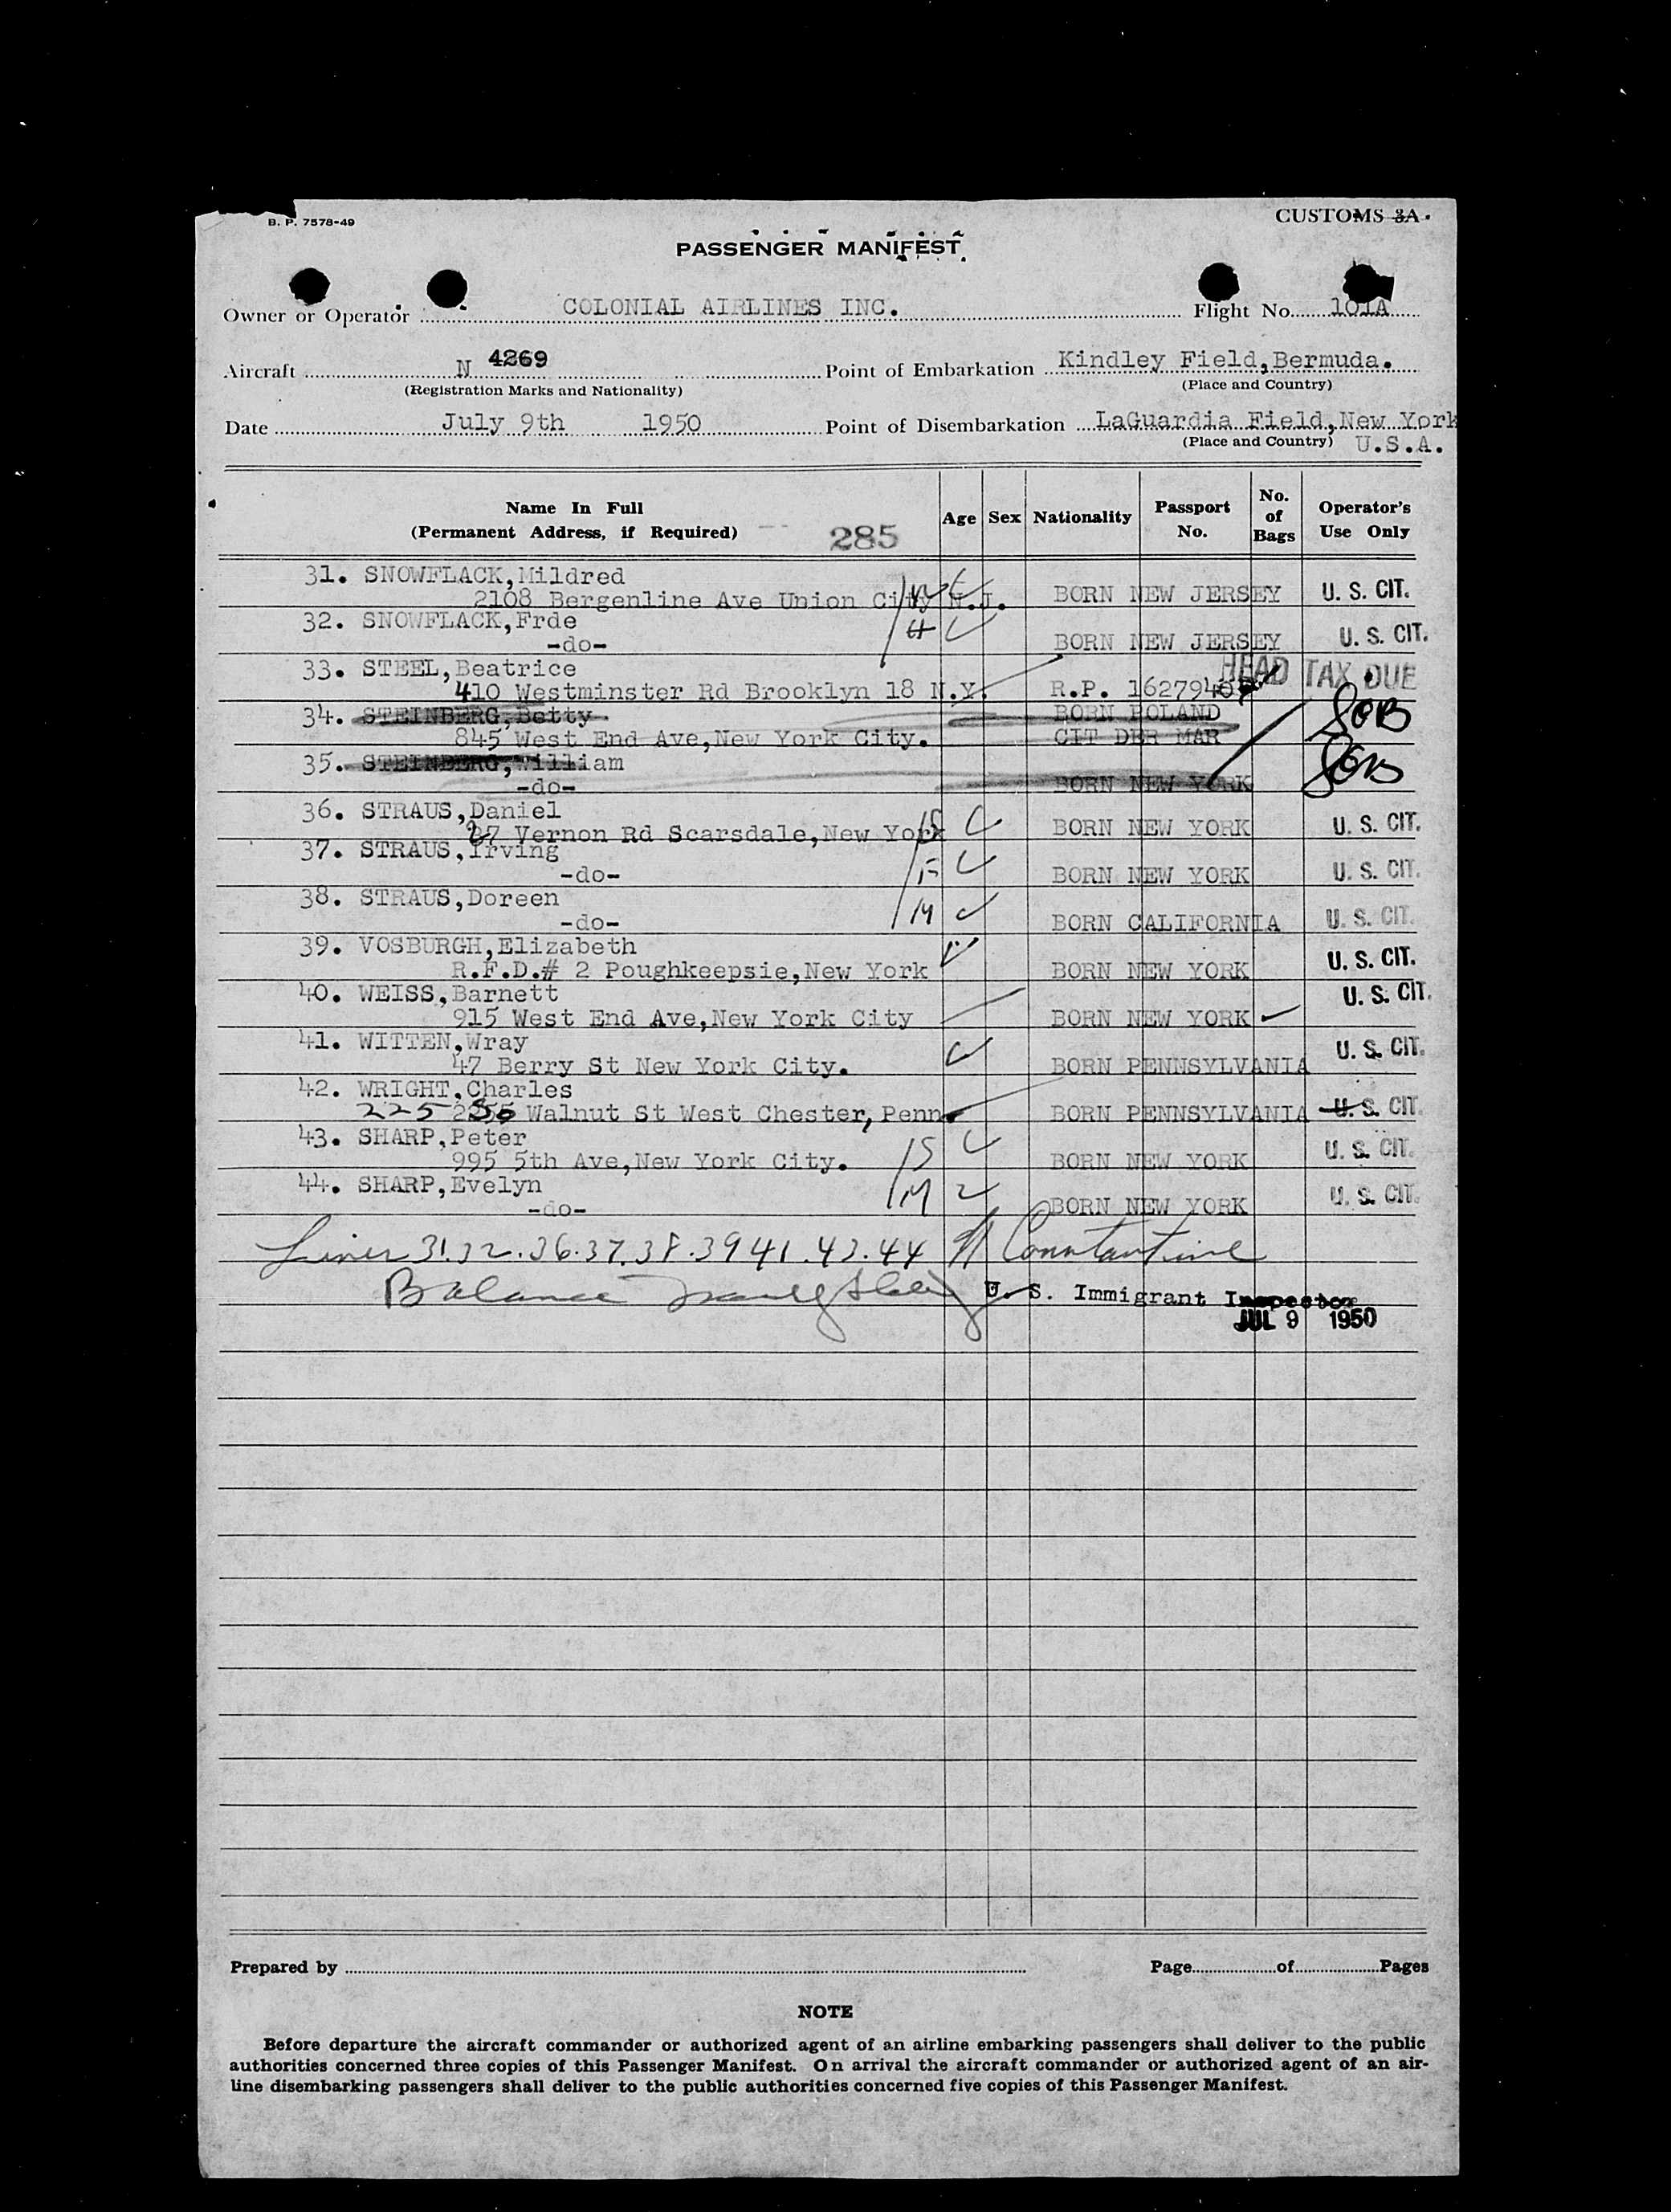 B. P. 7578-49
CUSTOMS 3A.
PASSENGER MANIFEST
Owner or Operator COLONIAL AIRLINES INC. Flight No. 101A
Aircraft N 4269 Point of Embarkation Kindley Field,Bermuda.
(Registration Marks and Nationality) (Place and Country)
Date July 9th 1950 Point of Disembarkation LaGuardia Field,New York
(Place and Country) U.S.A.
Name In Full (Permanent Address, if Required) 285 Age Sex Nationality Passport No. No. of Bags Operator's Use Only
31. SNOWFLACK,Mildred
2108 Bergenline Ave Union City N.J. BORN NEW JERSEY U. S. CIT.
32. SNOWFLACK,Frde
-do- BORN NEW JERSEY U. S. CIT.
33. STEEL,Beatrice HEAD TAX DUE
410 Westminster Rd Brooklyn 18 N.Y. R.P. 1627940
34. STEINBERG,Betty BORN POLAND
845 West End Ave,New York City. CIT DER MAR
35. STEINBERG,William
-do- BORN NEW YORK
36. STRAUS,Daniel
27 Vernon Rd Scarsdale,New York BORN NEW YORK U. S. CIT.
37. STRAUS,Irving
-do- BORN NEW YORK U. S. CIT.
38. STRAUS,Doreen
-do- BORN CALIFORNIA U. S. CIT.
39. VOSBURGH,Elizabeth
R.F.D.# 2 Poughkeepsie,New York BORN NEW YORK U. S. CIT.
40. WEISS,Barnett U. S. CIT.
915 West End Ave,New York City BORN NEW YORK
41. WITTEN,Wray
47 Berry St New York City. BORN PENNSYLVANIA U. S. CIT.
42. WRIGHT,Charles
225 Walnut St West Chester,Penn. BORN PENNSYLVANIA U. S. CIT.
43. SHARP,Peter
995 5th Ave,New York City. BORN NEW YORK U. S. CIT.
44. SHARP,Evelyn
-do- BORN NEW YORK U. S. CIT.
Lines 31.32.36.37.38.39 41.43.44 Constantine
Balance U. S. Immigrant Inspector
JUL 9 1950
Prepared by Page of Pages
NOTE
Before departure the aircraft commander or authorized agent of an airline embarking passengers shall deliver to the public
authorities concerned three copies of this Passenger Manifest. On arrival the aircraft commander or authorized agent of an air-
line disembarking passengers shall deliver to the public authorities concerned five copies of this Passenger Manifest.